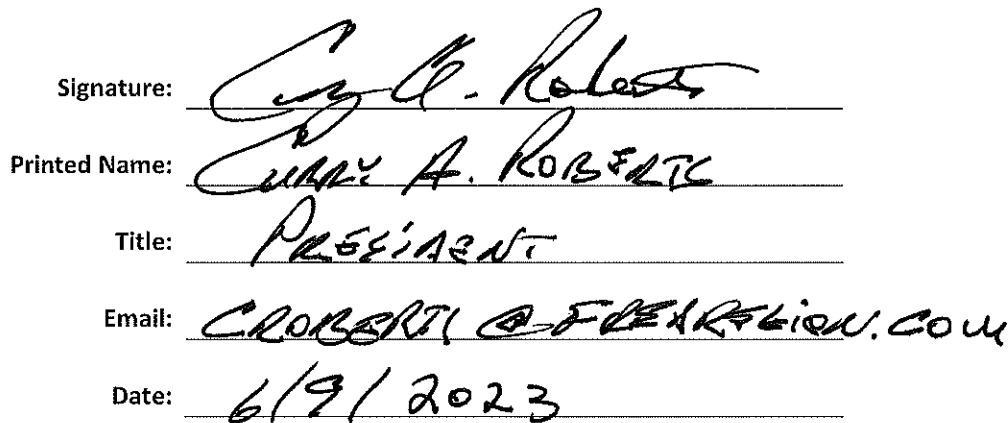 Signature: Curry A. Roberts
Printed Name: CURRY A. ROBERTS
Title: PRESIDENT
Email: CROBERTS@FREDREGION.COM
Date: 6/9/2023